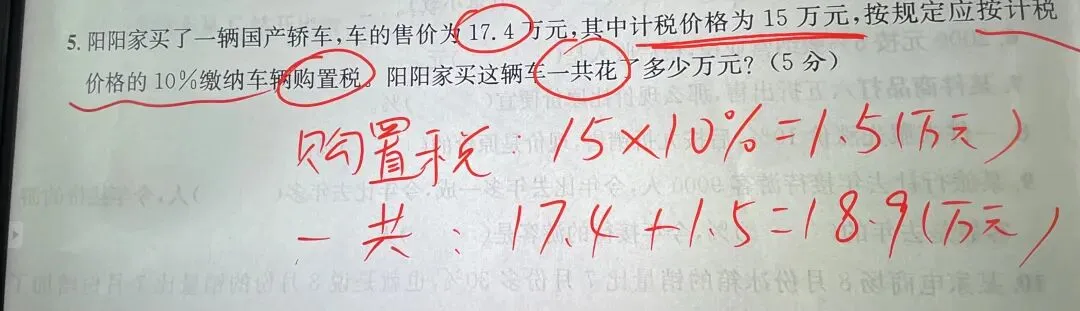 5. 阳阳家买了一辆国产轿车,车的售价为17.4万元,其中计税价格为15万元,按规定应按计税
价格的10%缴纳车辆购置税。阳阳家买这辆车一共花了多少万元?(5分)
购置税:15×10%=1.5(万元)
一共:17.4+1.5=18.9(万元)